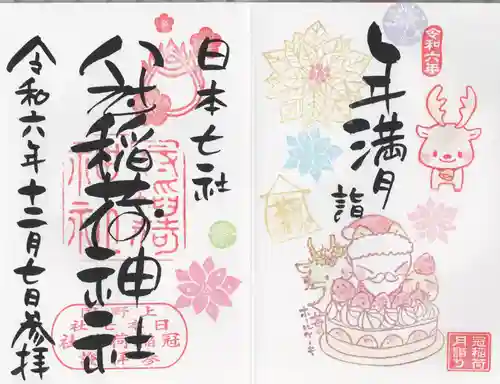 年満月
詣
令和六年
冠稲荷
月詣り
日本七社
冠稲荷神社
令和六年十二月七日参拝